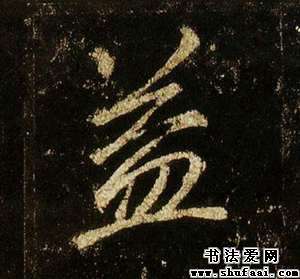 益
书法爱网
www.shufaai.com